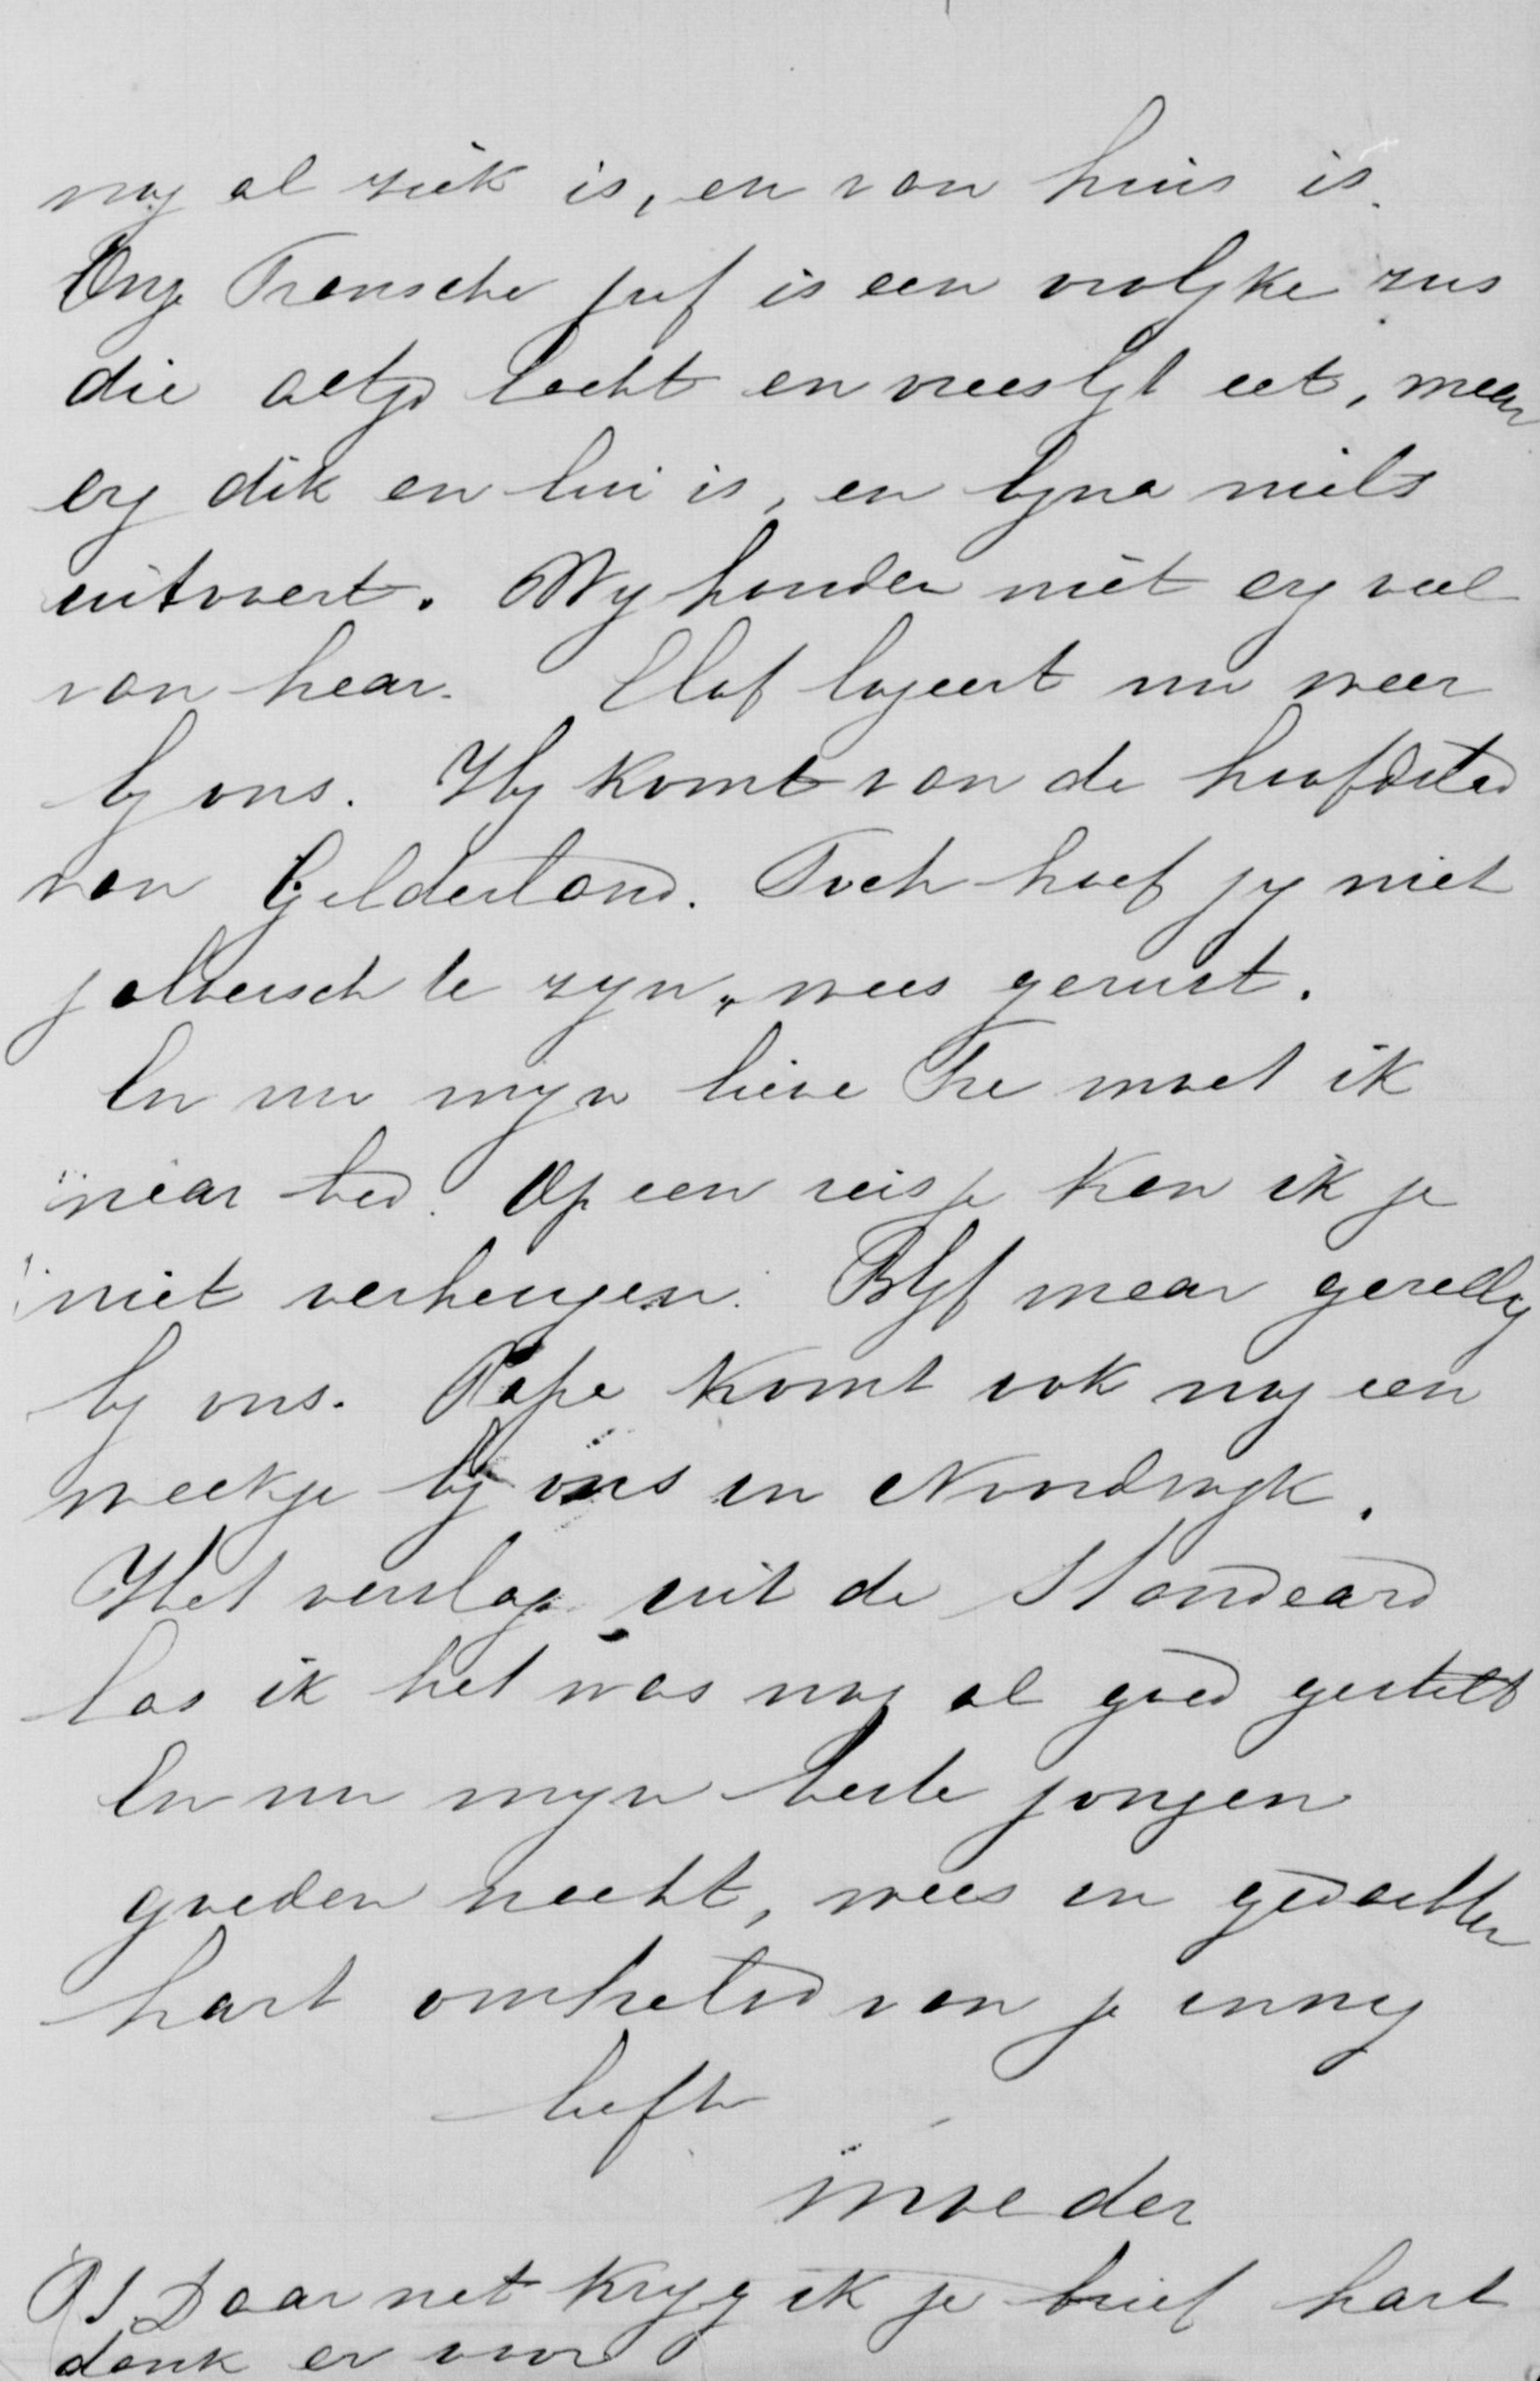 nog al ziek is, en van huis is.
Onze Fransche juf is een vrolyke zus
die altyd lacht en vreeslyk eet, maar
erg dik en lui is, en byna niets
uitvoert. Wy houden niet erg veel
van haar. Olaf logeert nu weer
by ons. Hy komt van de hoofdstad
van Gelderland. Toch hoef jy niet
jaloersch te zyn, wees gerust.
En nu myn lieve Fré moet ik
naar bed. Op een reisje kan ik je
niet verheugen. Blyf maar gezellig
by ons. Papa komt ook nog een
weekje by ons in Noordwyk.
Het verslag uit de Standaard
las ik het was nog al goed gesteld
En nu myn beste jongen
goeden nacht, wees in gedachten
hart omhelsd van je innig
liefh
moeder
PS Daar net kryg ik je brief hart
dank er voor